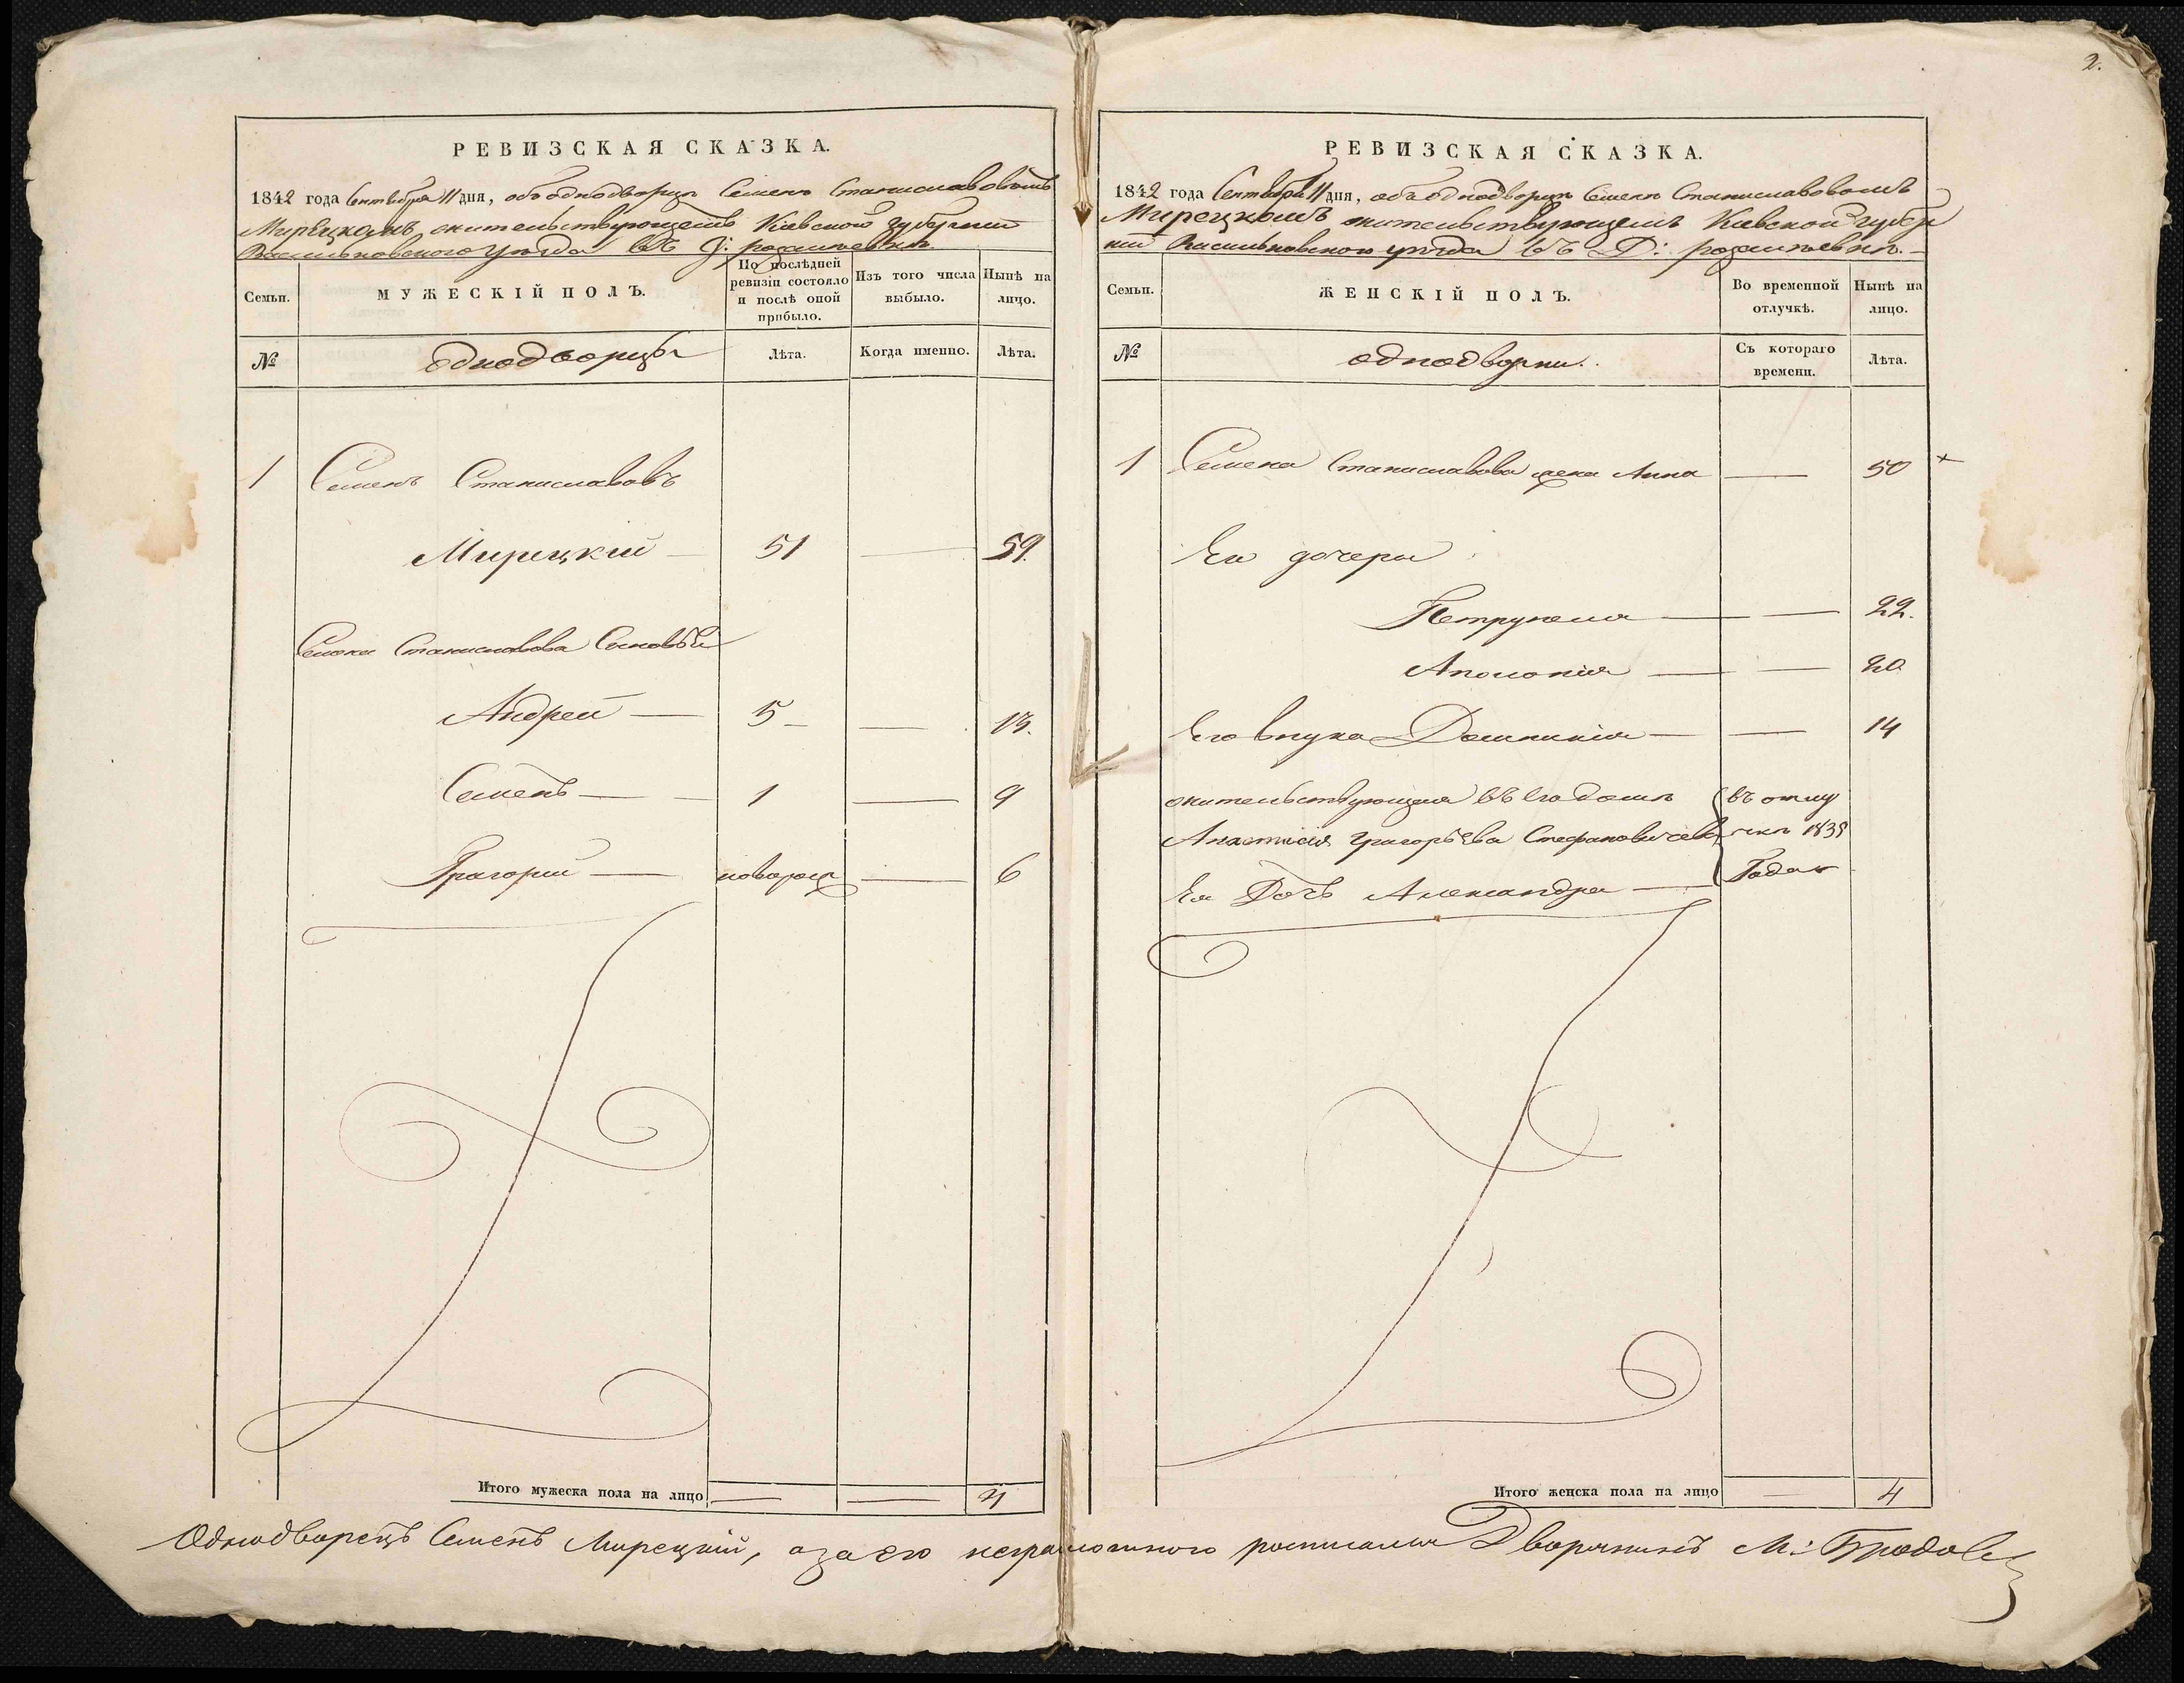 2.
РЕВИЗСКАЯ СКАЗКА.
1842 года Сентября 11 дня, объ однодворцѣ Семенѣ Станиславовомъ
Мирецкомъ жительствующемъ Кіевской губерніи
Васильковского уѣзда въ Д:
Семьи.
МУЖЕСКІЙ ПОЛЪ.
По послѣдней ревизіи состояло и послѣ оной прибыло.
Изъ того числа выбыло.
Нынѣ на лицо.
№
однодворцы
Лѣта.
Когда именно.
Лѣта.
1 Семенъ Станиславовъ
Мирецкій — 51 — 59.
Семена Станиславова Сыновья
Андрей — 5 — — 13.
Семенъ — — 1 — 9
Григорий — новорож — 6
Итого мужеска пола на лицо — — 4
РЕВИЗСКАЯ СКАЗКА.
1842 года Сентября 11 дня, объ однодворцѣ Семенѣ Станиславовомъ
Мирецкомъ жительствующемъ Кіевской губер
ніи Васильковского уѣзда въ Д:
Семьи.
ЖЕНСКІЙ ПОЛЪ.
Во временной отлучкѣ.
Нынѣ на лицо.
№
однодворки.
Съ котораго времени.
Лѣта.
1 Семена Станиславова жена Анна — 50 +
Ея дочери
Петрунеля — — 22.
Аполонія — — 20
Его внука Доминикія — — 14
жительствующия въ его домѣ въ отлу
Анастасія Григорьева Стефановичева чкѣ 1838
Ея Дочь Александра — Года
Итого женска пола на лицо — 4
Однодворецъ Семенъ Мирецкий, а за его неграмотного росписался Дворянинъ М: